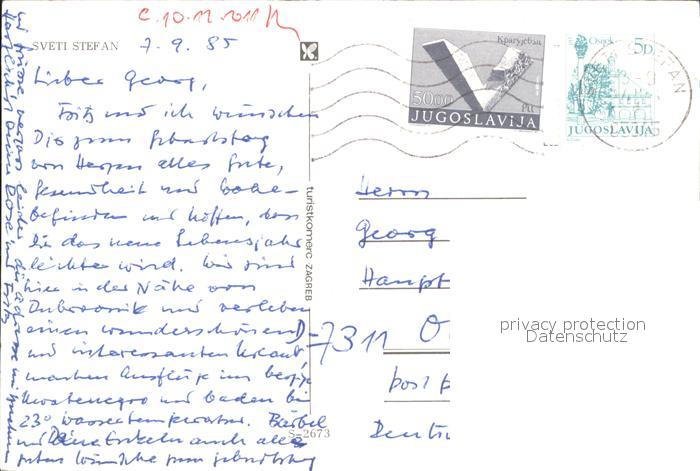 C. 10-12-2011
SVETI STEFAN
7. 9. 85
Lieber Georg,
Fritz und ich wünschen
Dir zum Geburtstag
von Herzen alles Gute,
Gesundheit und Wohl-
befinden und hoffen, dass
Dir das neue Lebensjahr
leichter wird. Wir sind
hier in der Nähe von
Dubrovnik und verleben
einen wunderschönen
und interessanten Urlaub,
machen Ausflüge ins
Montenegro und baden bei
23° Wassertemperatur. Bärbel
und Deine Enkeln auch alles
gute Wünsche zum Geburtstag
turistkomerc ZAGREB
S-2673
Крагујевац
5000
JUGOSLAVIJA
Osijek
5D
JUGOSLAVIJA
STEFAN
Herrn
Georg
Haupt
D-7311 O
Post
Deuts
privacy protection
Datenschutz